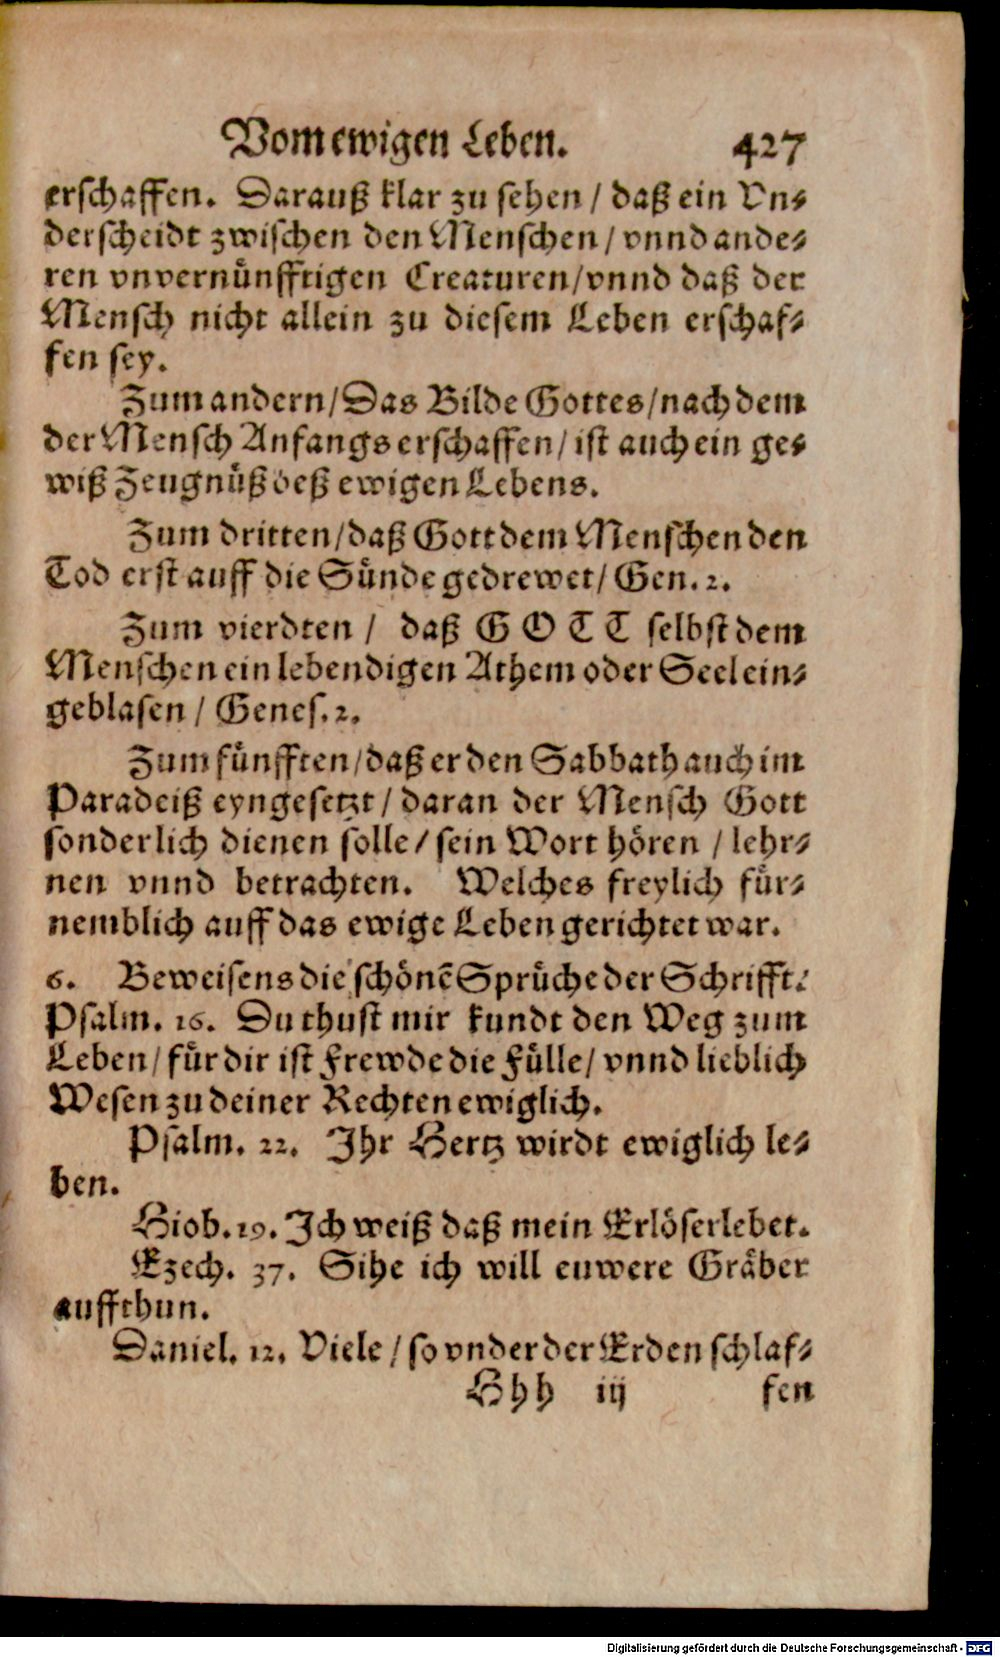 Vom ewigen Leben. 427
erschaffen. Darauß klar zu sehen / daß ein Vn-
derscheidt zwischen den Menschen / vnnd ande-
ren vnvernünfftigen Creaturen / vnnd daß der
Mensch nicht allein zu diesem Leben erschaf-
fen sey.
Zum andern / Das Bilde Gottes / nach dem
der Mensch Anfangs erschaffen / ist auch ein ge-
wiß Zeugnüß deß ewigen Lebens.
Zum dritten / daß Gott dem Menschen den
Tod erst auff die Sünde gedrewet / Gen. 2.
Zum vierdten / daß GOTT selbst dem
Menschen ein lebendigen Athem oder Seel ein-
geblasen / Genes. 2.
Zum fünfften / daß er den Sabbath auch im
Paradeiß eyngesetzt / daran der Mensch Gott
sonderlich dienen solle / sein Wort hören / lehr-
nen vnnd betrachten. Welches freylich für-
nemblich auff das ewige Leben gerichtet war.
6. Beweisens die schönē Sprüche der Schrifft:
Psalm. 16. Du thust mir kundt den Weg zum
Leben / für dir ist Frewde die Fülle / vnnd lieblich
Wesen zu deiner Rechten ewiglich.
Psalm. 22. Ihr Hertz wirdt ewiglich le-
ben.
Hiob. 19. Ich weiß daß mein Erlöser lebet.
Ezech. 37. Sihe ich will euwere Gräber
auffthun.
Daniel. 12. Viele / so vnder der Erden schlaf-
Hhh iij fen
Digitalisierung gefördert durch die Deutsche Forschungsgemeinschaft - DFG